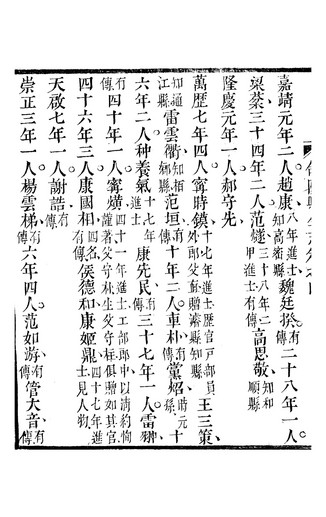 嘉靖元年二人趙康八年進士知高縣有傳魏廷揆有傳二十八年一人
梁棻三十四年二人范燧三十八年二甲進士有傳高思敬知和順縣
隆慶元年一人郝守先
萬歷七年四人甯時鏌十七年進士歷官戶部員外郎父蘇贈縣知縣王三策
知通江縣雷雲衢知栢鄉縣范垣有傳十年二人車朴有傳黨炤時元十孫
六年二人种養氣進士康先民有傳三十七年一人雷翀
有傳四十年一人甯爌四十一年進士工部郎中以清約恂著父守秋生父守採俱贈如其官
四十六年三人康國相四名有傳侯德和康姬鼎四十七年進士見人物
天啟七年一人謝誥有傳
崇正三年一人楊雲梯有傳六年四人范如游有傳管大音有傳